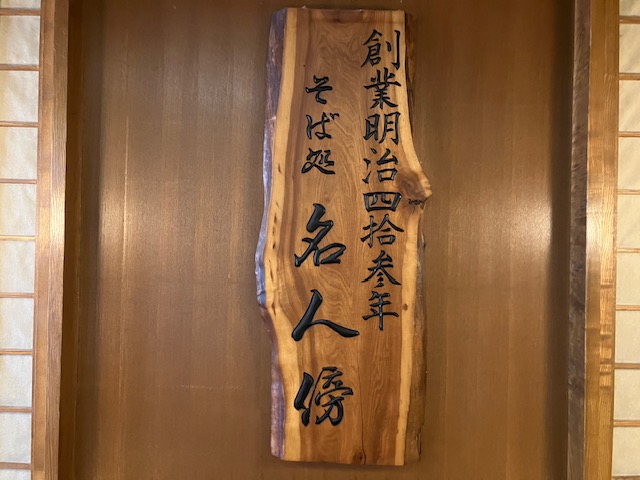 創業明治四拾参年
そば処
名人傍